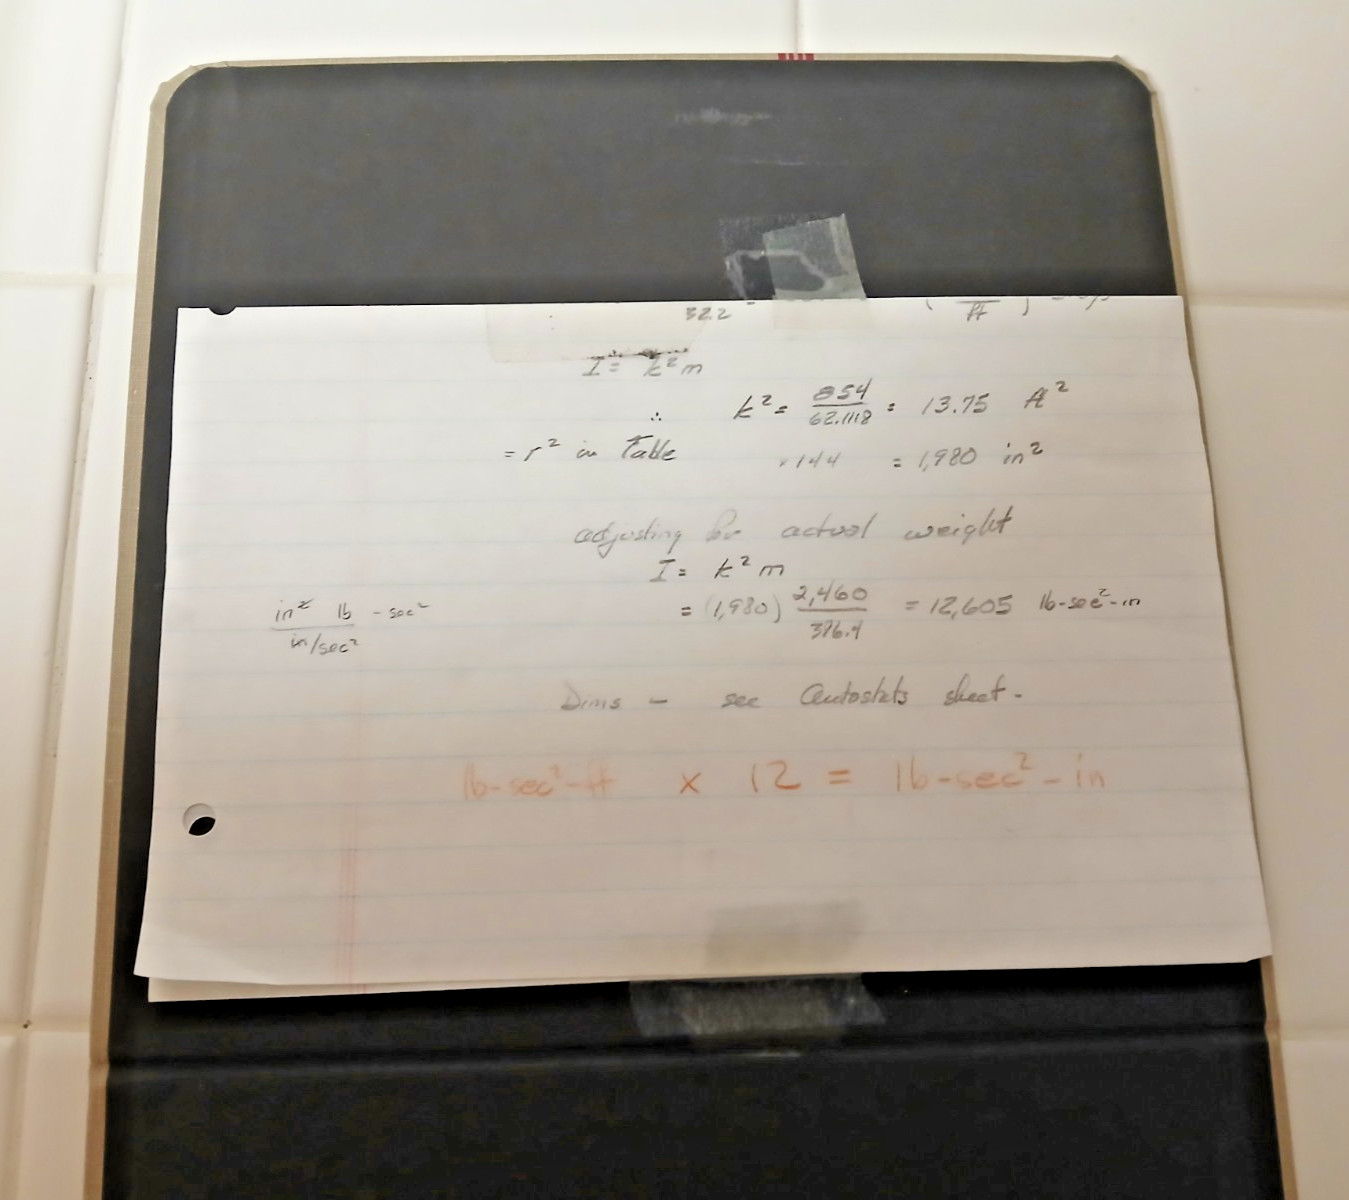 32.2
ft
I = k²m
∴ k² = 854/62.1118 = 13.75 ft²
= r² in Table ×144 = 1,980 in²
adjusting for actual weight
I = k²m
= (1,980) 2,460/386.4 = 12,605 lb-sec²-in
in² lb-sec²
in/sec²
Dims - see Autostats sheet.
lb-sec²-ft × 12 = lb-sec²-in